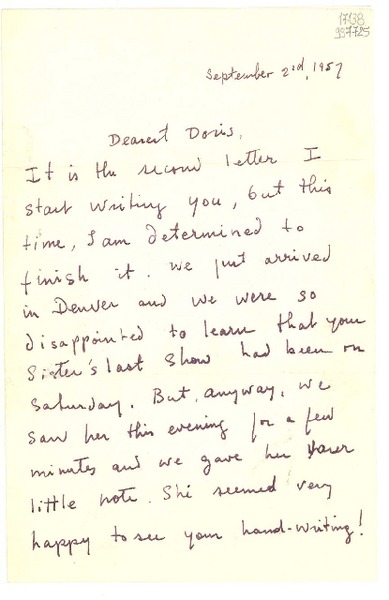 17138
997725
September 2nd, 1957
Dearest Doris,
It is the second letter I
start writing you, but this
time, I am determined to
finish it. We just arrived
in Denver and we were so
disappointed to learn that your
Sister's last show had been on
Saturday. But, anyway, we
saw her this evening for a few
minutes and we gave her your
little note. She seemed very
happy to see your hand-writing!